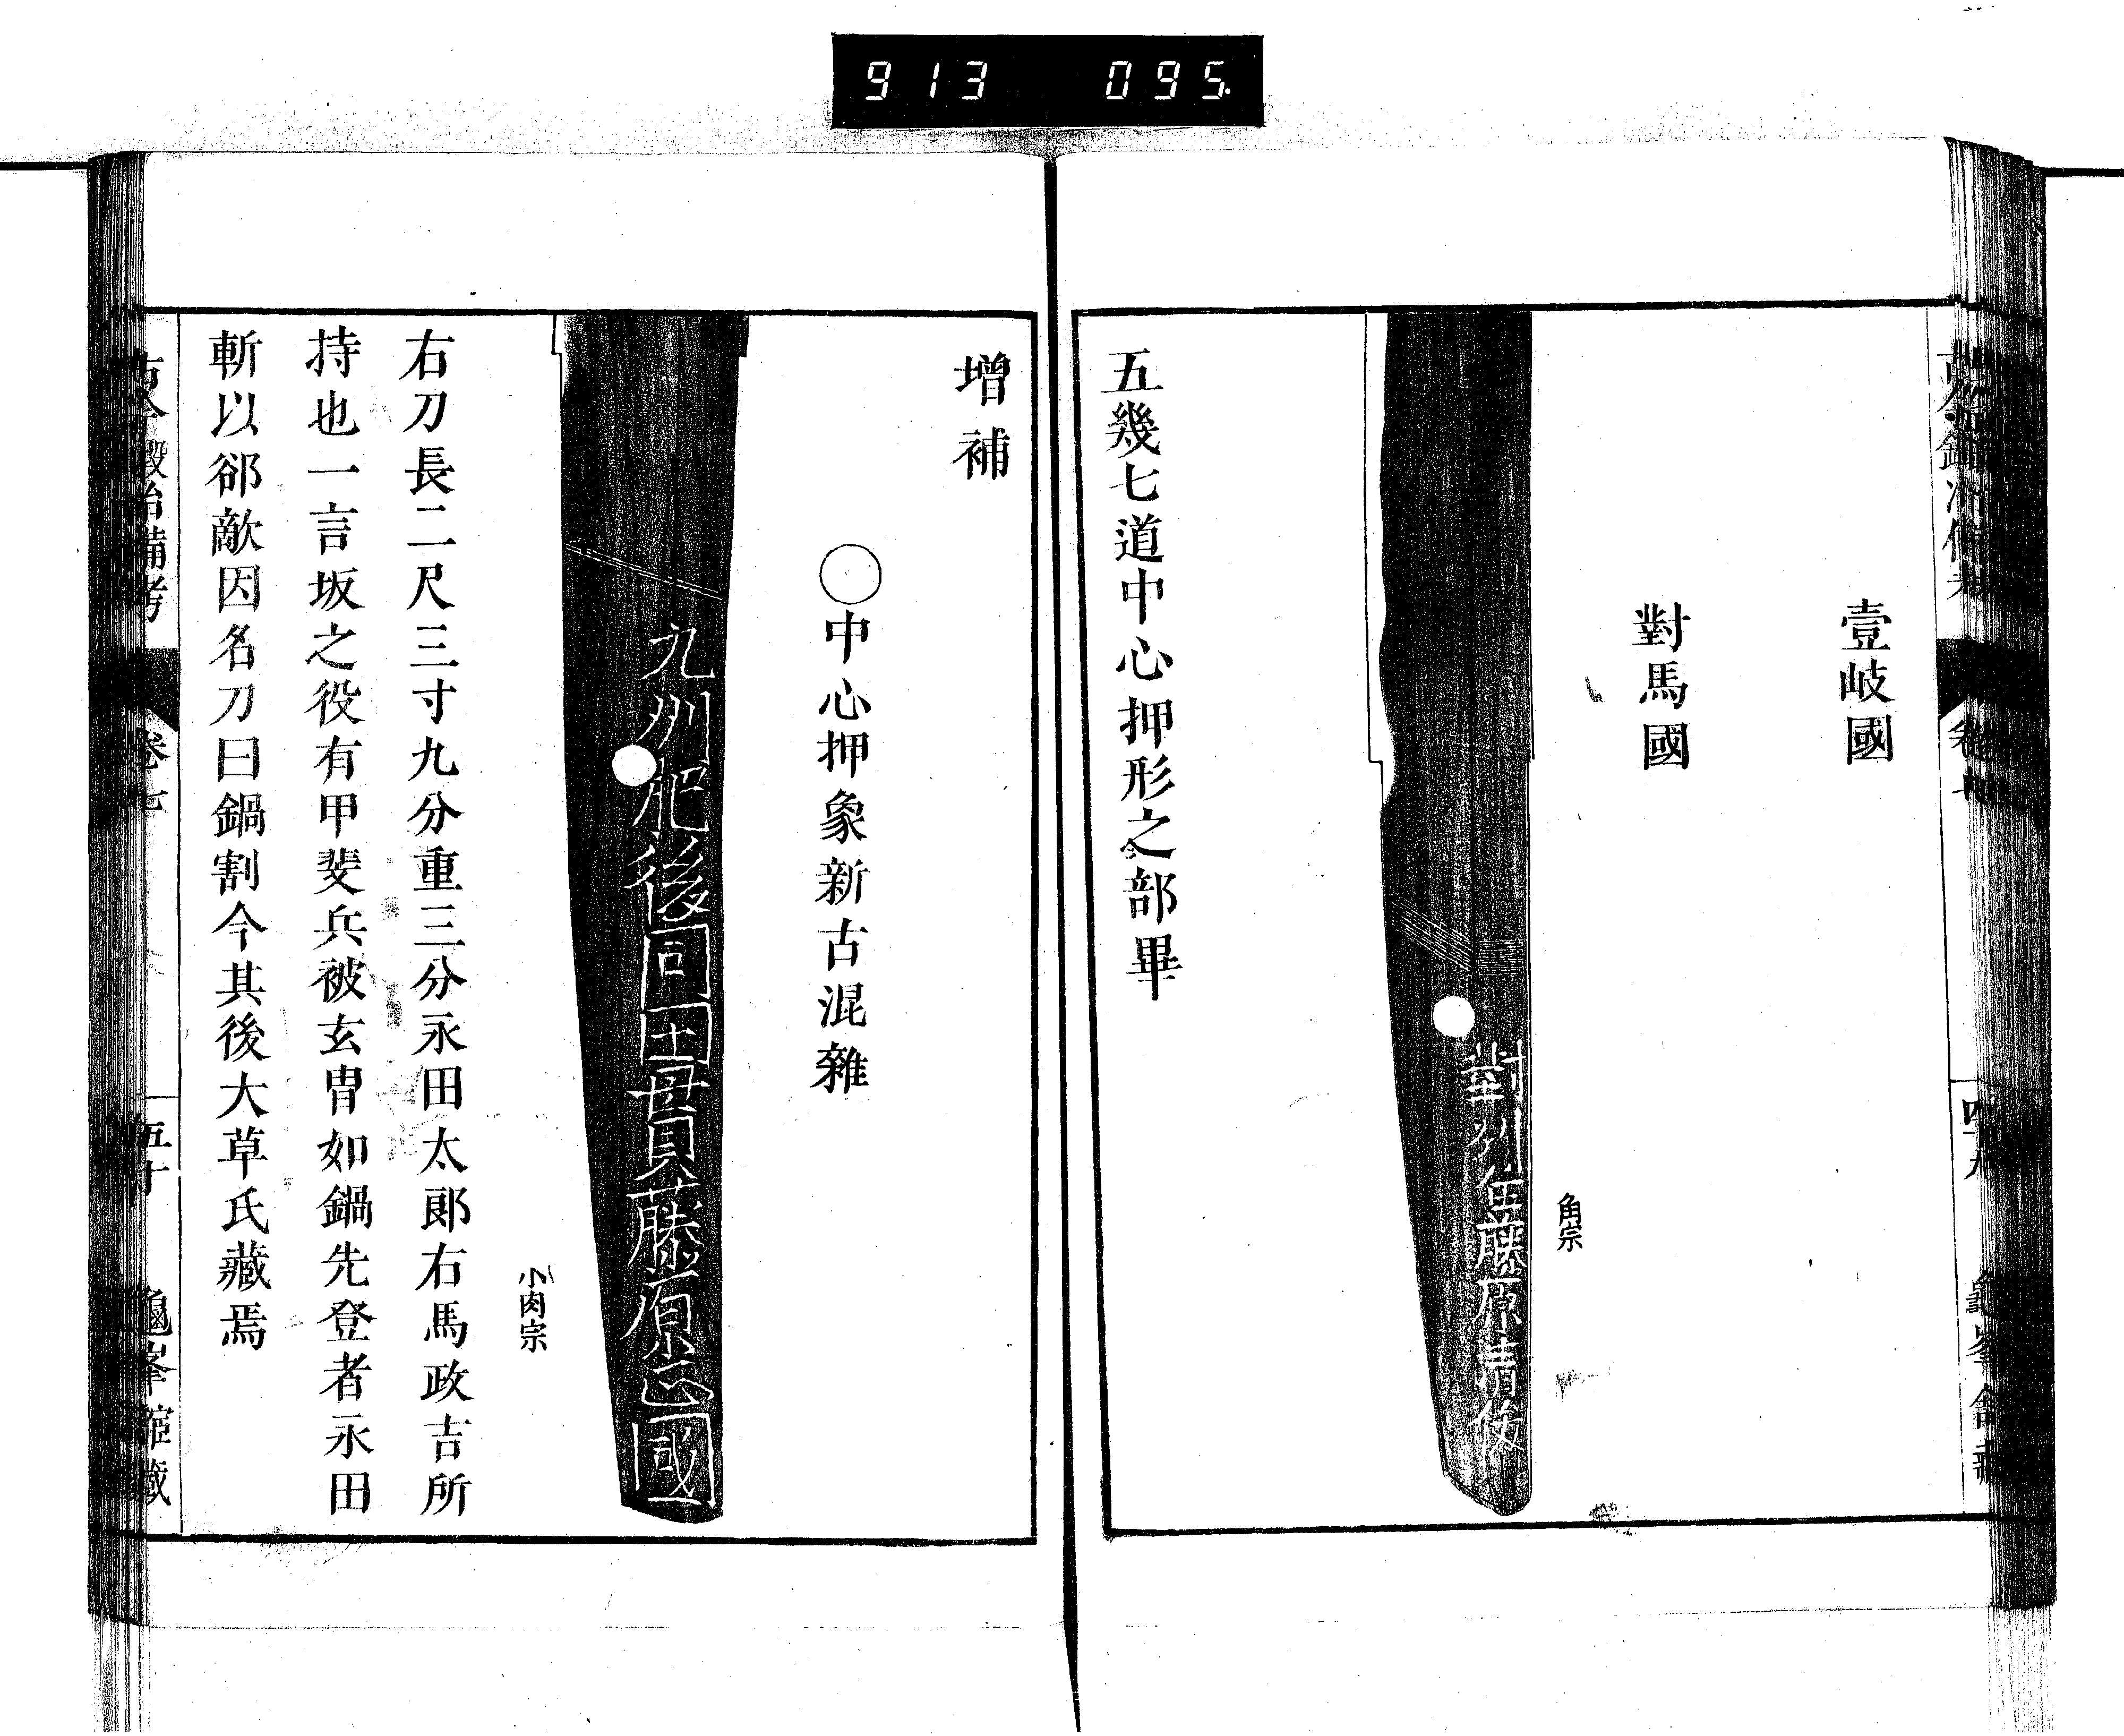 913 095
壹岐國
對馬國
對州住藤原清俊
角宗
五幾七道中心押形之部畢
增補
○中心押象新古混雜
九州肥後同田貫藤原正國
小肉宗
右刀長二尺三寸九分重三分永田太郎右馬政吉所
持也一言坂之役有甲斐兵被玄冑如鍋先登者永田
斬以郤敵因名刀曰鍋割今其後大草氏藏焉
古今鍛冶備考 卷七 五十 龜峯館藏